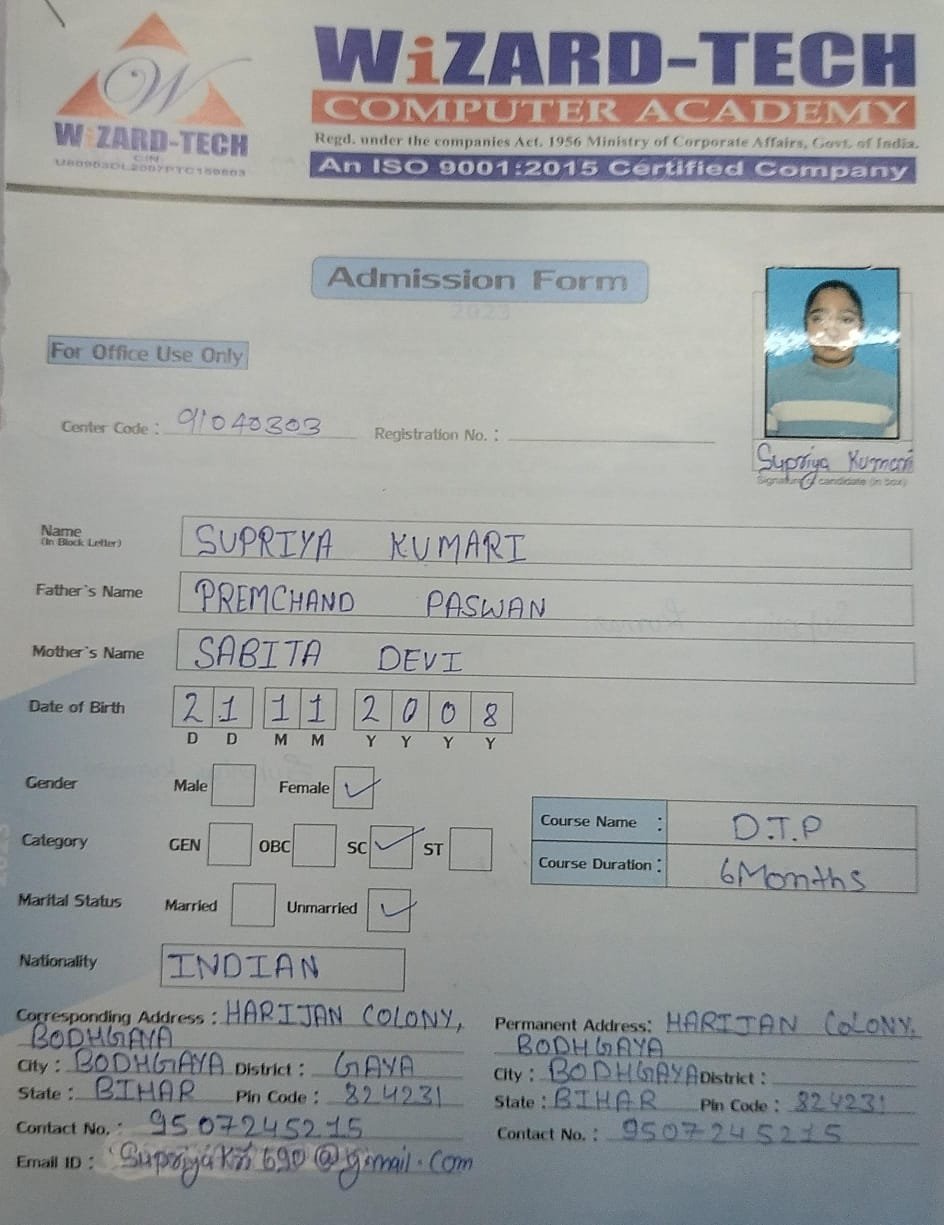 WiZARD-TECH
COMPUTER ACADEMY
Regd. under the companies Act. 1956 Ministry of Corporate Affairs, Govt. of India.
An ISO 9001:2015 Certified Company
W
WiZARD-TECH
CIN:
Admission Form
2023
For Office Use Only
Center Code : 91040303 Registration No. :
Supriya Kumari
Signature of candidate (in box)
Name SUPRIYA KUMARI
(In Block Letter)
Father's Name PREMCHAND PASWAN
Mother's Name SABITA DEVI
Date of Birth 2 1 1 1 2 0 0 8
D D M M Y Y Y Y
Gender Male Female ✓
Category GEN OBC SC ✓ ST
Course Name : D.T.P
Course Duration : 6 Months
Marital Status Married Unmarried ✓
Nationality INDIAN
Corresponding Address : HARIJAN COLONY,
BODHGAYA
City : BODHGAYA District : GAYA
State : BIHAR Pin Code : 824231
Contact No. : 9507245215
Email ID : @gmail.com
Permanent Address: HARIJAN COLONY,
BODHGAYA
City : BODHGAYA District :
State : BIHAR Pin Code : 824231
Contact No. : 9507245215